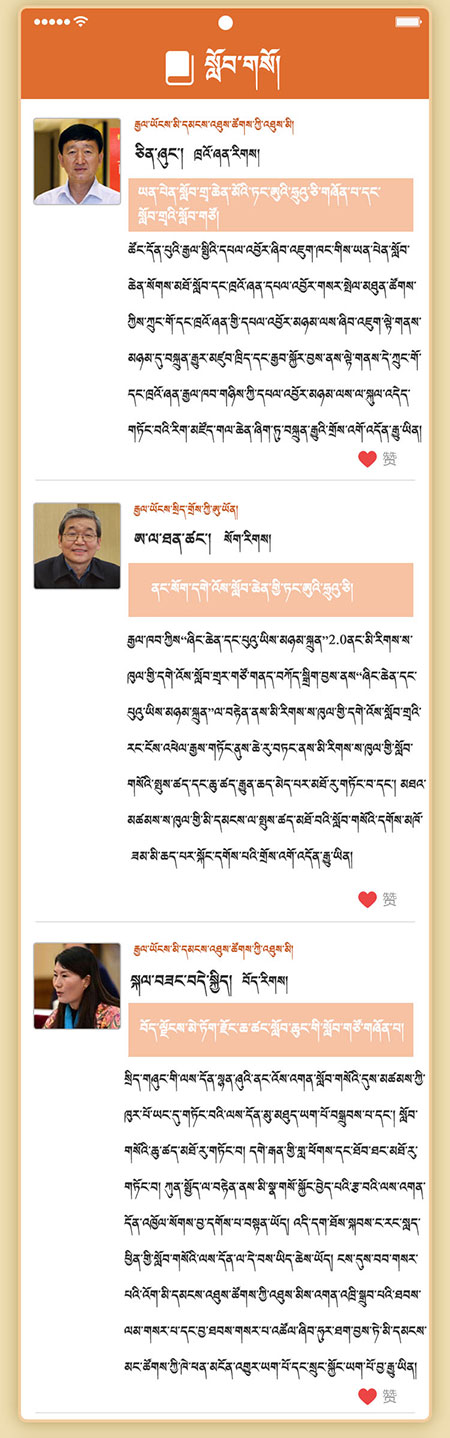 སློབ་གསོ།
རྒྱལ་ཡོངས་མི་དམངས་འཐུས་ཚོགས་ཀྱི་འཐུས་མི།
ཅིན་ཞུང་། ཁྲའོ་ཞན་རིགས།
ཡན་པེན་སློབ་གྲྭ་ཆེན་མོའི་ཏང་ཨུའི་ཧྲུའུ་ཅི་གཞོན་པ་དང་
སློབ་གྲྭའི་སློབ་གཙོ།
ཚོང་དོན་པུའི་རྒྱལ་སྤྱིའི་དཔལ་འབྱོར་ཞིབ་འཇུག་ཁང་གིས་ཡན་པེན་སློབ་
ཆེན་སོགས་མཐོ་སློབ་དང་ཁྲའོ་ཞན་དཔལ་འབྱོར་གསར་སྤེལ་མཐུན་ཚོགས་
ཀྱིས་ཀྲུང་གོ་དང་ཁྲའོ་ཞན་གྱི་དཔལ་འབྱོར་མཉམ་ལས་ཞིབ་འཇུག་ལྟེ་གནས་
མཉམ་དུ་བསྐྲུན་རྒྱུར་མཛུབ་ཁྲིད་དང་རྒྱབ་སྐྱོར་བྱས་ནས་ལྟེ་གནས་དེ་ཀྲུང་གོ་
དང་ཁྲའོ་ཞན་རྒྱལ་ཁབ་གཉིས་ཀྱི་དཔལ་འབྱོར་མཉམ་ལས་ལ་སྐུལ་འདེད་
གཏོང་བའི་རིག་མཛོད་གལ་ཆེན་ཞིག་ཏུ་བསྐྲུན་རྒྱུའི་གྲོས་འགོ་འདོན་རྒྱུ་ཡིན།
赞
རྒྱལ་ཡོངས་སྲིད་གྲོས་ཀྱི་ཨུ་ཡོན།
ཨ་ལ་ཐན་ཚང་། སོག་རིགས།
ནང་སོག་དགེ་འོས་སློབ་ཆེན་གྱི་ཏང་ཨུའི་ཧྲུའུ་ཅི།
རྒྱལ་ཁབ་ཀྱིས“ཞིང་ཆེན་དང་པུའུ་ཡིས་མཉམ་སྐྲུན”2.0ནང་མི་རིགས་ས་
ཁུལ་གྱི་དགེ་འོས་སློབ་གྲྭར་གཙོ་གནད་བཀོད་སྒྲིག་བྱས་ནས“ཞིང་ཆེན་དང་
པུའུ་ཡིས་མཉམ་སྐྲུན”ལ་བརྟེན་ནས་མི་རིགས་ས་ཁུལ་གྱི་དགེ་འོས་སློབ་གྲྭའི་
རང་ངོས་འཕེལ་རྒྱས་གཏོང་ནུས་ཆེ་རུ་བཏང་ནས་མི་རིགས་ས་ཁུལ་གྱི་སློབ་
གསོའི་སྤུས་ཚད་དང་ཆུ་ཚད་རྒྱུན་ཆད་མེད་པར་མཐོ་རུ་གཏོང་བ་དང་། མཐའ་
མཚམས་ས་ཁུལ་གྱི་མི་དམངས་ལ་སྤུས་ཚད་མཐོ་བའི་སློབ་གསོའི་དགོས་མཁོ་
ཟམ་མི་ཆད་པར་སྐོང་དགོས་པའི་གྲོས་འགོ་འདོན་རྒྱུ་ཡིན།
赞
རྒྱལ་ཡོངས་མི་དམངས་འཐུས་ཚོགས་ཀྱི་འཐུས་མི།
སྐལ་བཟང་བདེ་སྐྱིད། བོད་རིགས།
བོད་ལྗོངས་མེ་ཏོག་རྫོང་ཆ་ཚང་སློབ་ཆུང་གི་སློབ་གཙོ་གཞོན་པ།
སྲིད་གཞུང་གི་ལས་དོན་སྙན་ཞུའི་ནང་འོས་འགན་སློབ་གསོའི་དུས་མཚམས་ཀྱི་
ཁུར་པོ་ཡང་དུ་གཏོང་བའི་ལས་དོན་མུ་མཐུད་ཡག་པོ་བསྒྲུབས་པ་དང་། སློབ་
གསོའི་ཆུ་ཚད་མཐོ་རུ་གཏོང་བ། དགེ་རྒན་གྱི་གླ་ཕོགས་དང་ཐོབ་ཐང་མཐོ་རུ་
གཏོང་བ། ཀུན་སྤྱོད་ལ་བརྟེན་ནས་མི་སྣ་གསོ་སྐྱོང་བྱེད་པའི་རྩ་བའི་ལས་འགན་
དོན་འཁྱོལ་སོགས་བྱ་དགོས་པ་བསྟན་ཡོད། འདི་དག་ཐོས་སྐབས་ང་རང་སླད་
ཕྱིན་གྱི་སློབ་གསོའི་ལས་དོན་ལ་དེ་བས་ཡིད་ཆེས་ཡོད། ངས་དུས་བབ་གསར་
པའི་འོག་མི་དམངས་འཐུས་ཚོགས་ཀྱི་འཐུས་མིས་འགན་འཁྲི་སྒྲུབ་པའི་ཐབས་
ལམ་གསར་པ་དང་བྱ་ཐབས་གསར་པ་འཚོལ་ཞིབ་ཧུར་ཐག་བྱས་ཏེ་མི་དམངས་
མང་ཚོགས་ཀྱི་ཁེ་ཕན་མངོན་འགྱུར་ཡག་པོ་དང་སྲུང་སྐྱོང་ཡག་པོ་བྱ་རྒྱུ་ཡིན།
赞